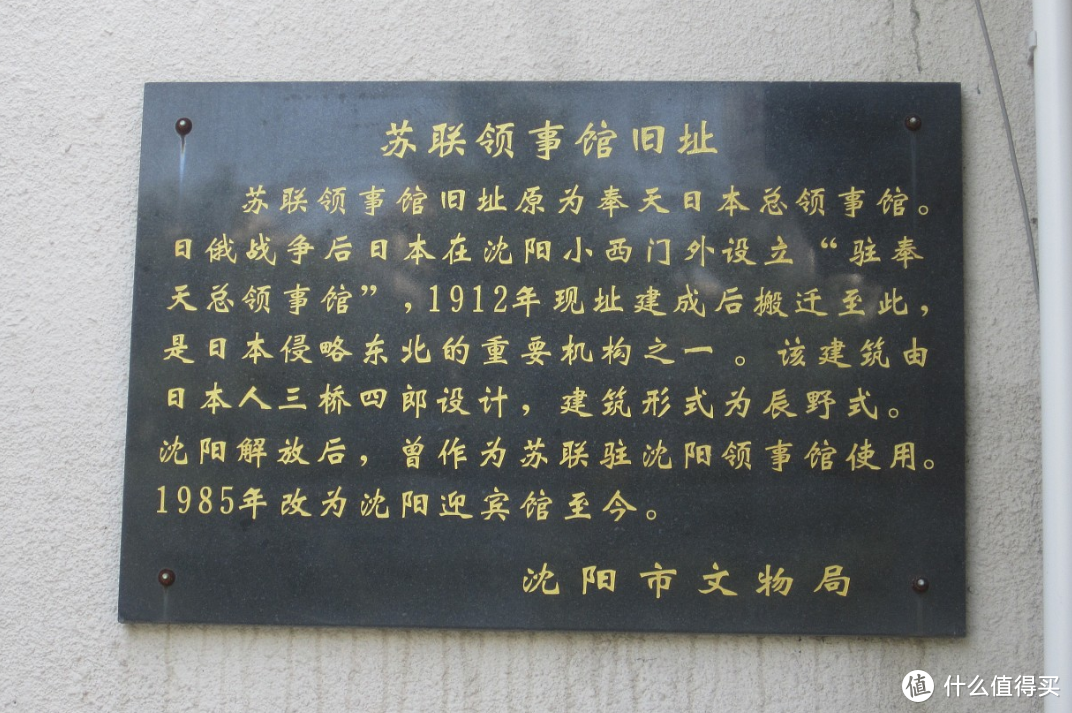 苏联领事馆旧址
苏联领事馆旧址原为奉天日本总领事馆。
日俄战争后日本在沈阳小西门外设立“驻奉
天总领事馆”，1912年现址建成后搬迁至此，
是日本侵略东北的重要机构之一。该建筑由
日本人三桥四郎设计，建筑形式为辰野式。
沈阳解放后，曾作为苏联驻沈阳领事馆使用。
1985年改为沈阳迎宾馆至今。
沈阳市文物局
值 什么值得买